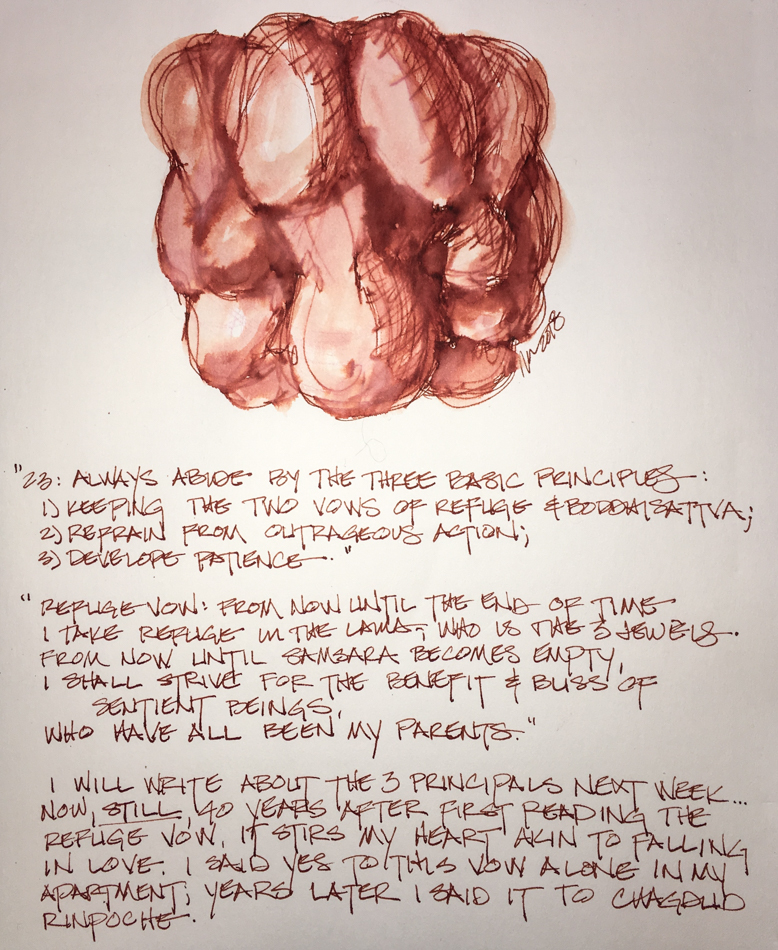 "23: ALWAYS ABIDE BY THE THREE BASIC PRINCIPLES:
1) KEEPING THE TWO VOWS OF REFUGE & BODDHISATTVA;
2) REFRAIN FROM OUTRAGEOUS ACTION;
3) DEVELOPE PATIENCE."
"REFUGE VOW: FROM NOW UNTIL THE END OF TIME
I TAKE REFUGE IN THE LAMA, WHO IS THE 3 JEWELS.
FROM NOW UNTIL SAMSARA BECOMES EMPTY,
I SHALL STRIVE FOR THE BENEFIT & BLISS OF
SENTIENT BEINGS,
WHO HAVE ALL BEEN MY PARENTS."
I WILL WRITE ABOUT THE 3 PRINCIPALS NEXT WEEK...
NOW, STILL, 40 YEARS AFTER FIRST READING THE
REFUGE VOW, IT STIRS MY HEART AKIN TO FALLING
IN LOVE. I SAID YES TO THIS VOW ALONE IN MY
APARTMENT; YEARS LATER I SAID IT TO CHAGDUD
RINPOCHE.